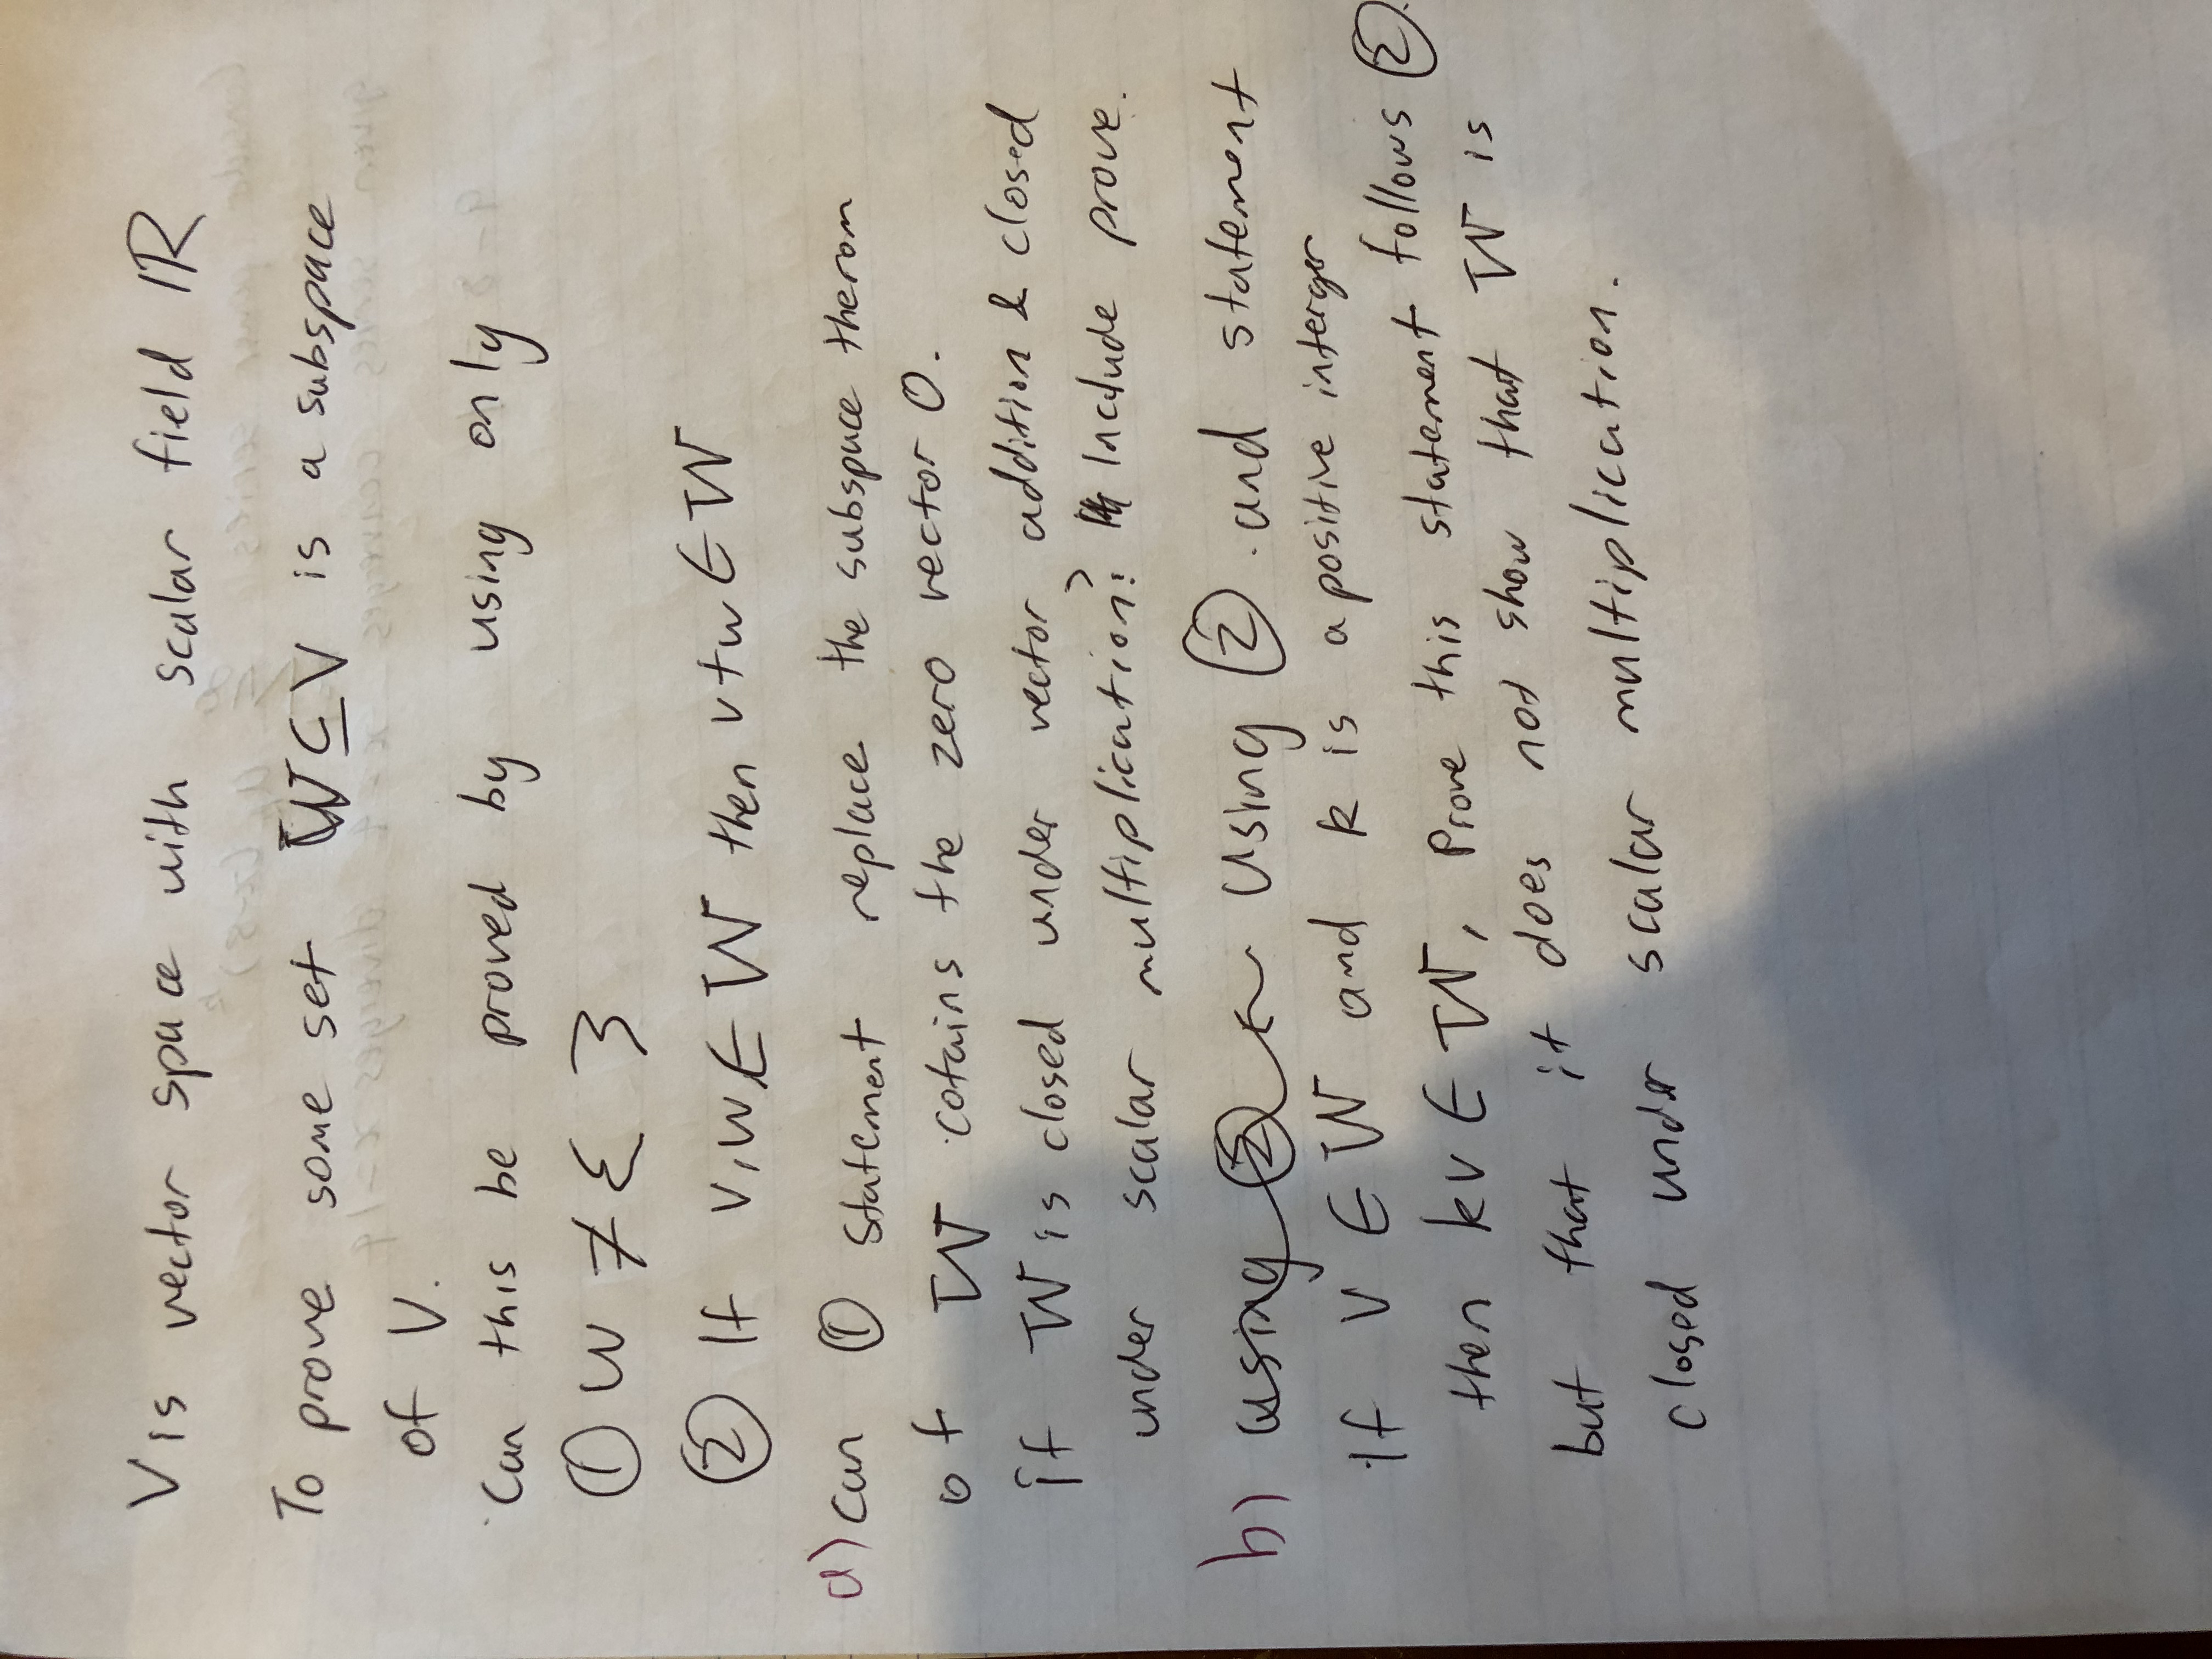 V is vector space with scalar field ℝ
To prove some set W ⊆ V is a subspace
of V.
Can this be proved by using only
① W ≠ { }
② If v, w ∈ W then v + w ∈ W
a) Can ① Statement replace the subspace therom
of W cotains the zero vector 0.
if W is closed under vector addition & closed
under scalar multiplication? Include prove.
b) using ② and statement
If v ∈ W and k is a positive interger
then kv ∈ W, Prove this statement follows ②.
but that it does not show that W is
closed under scalar multiplication.